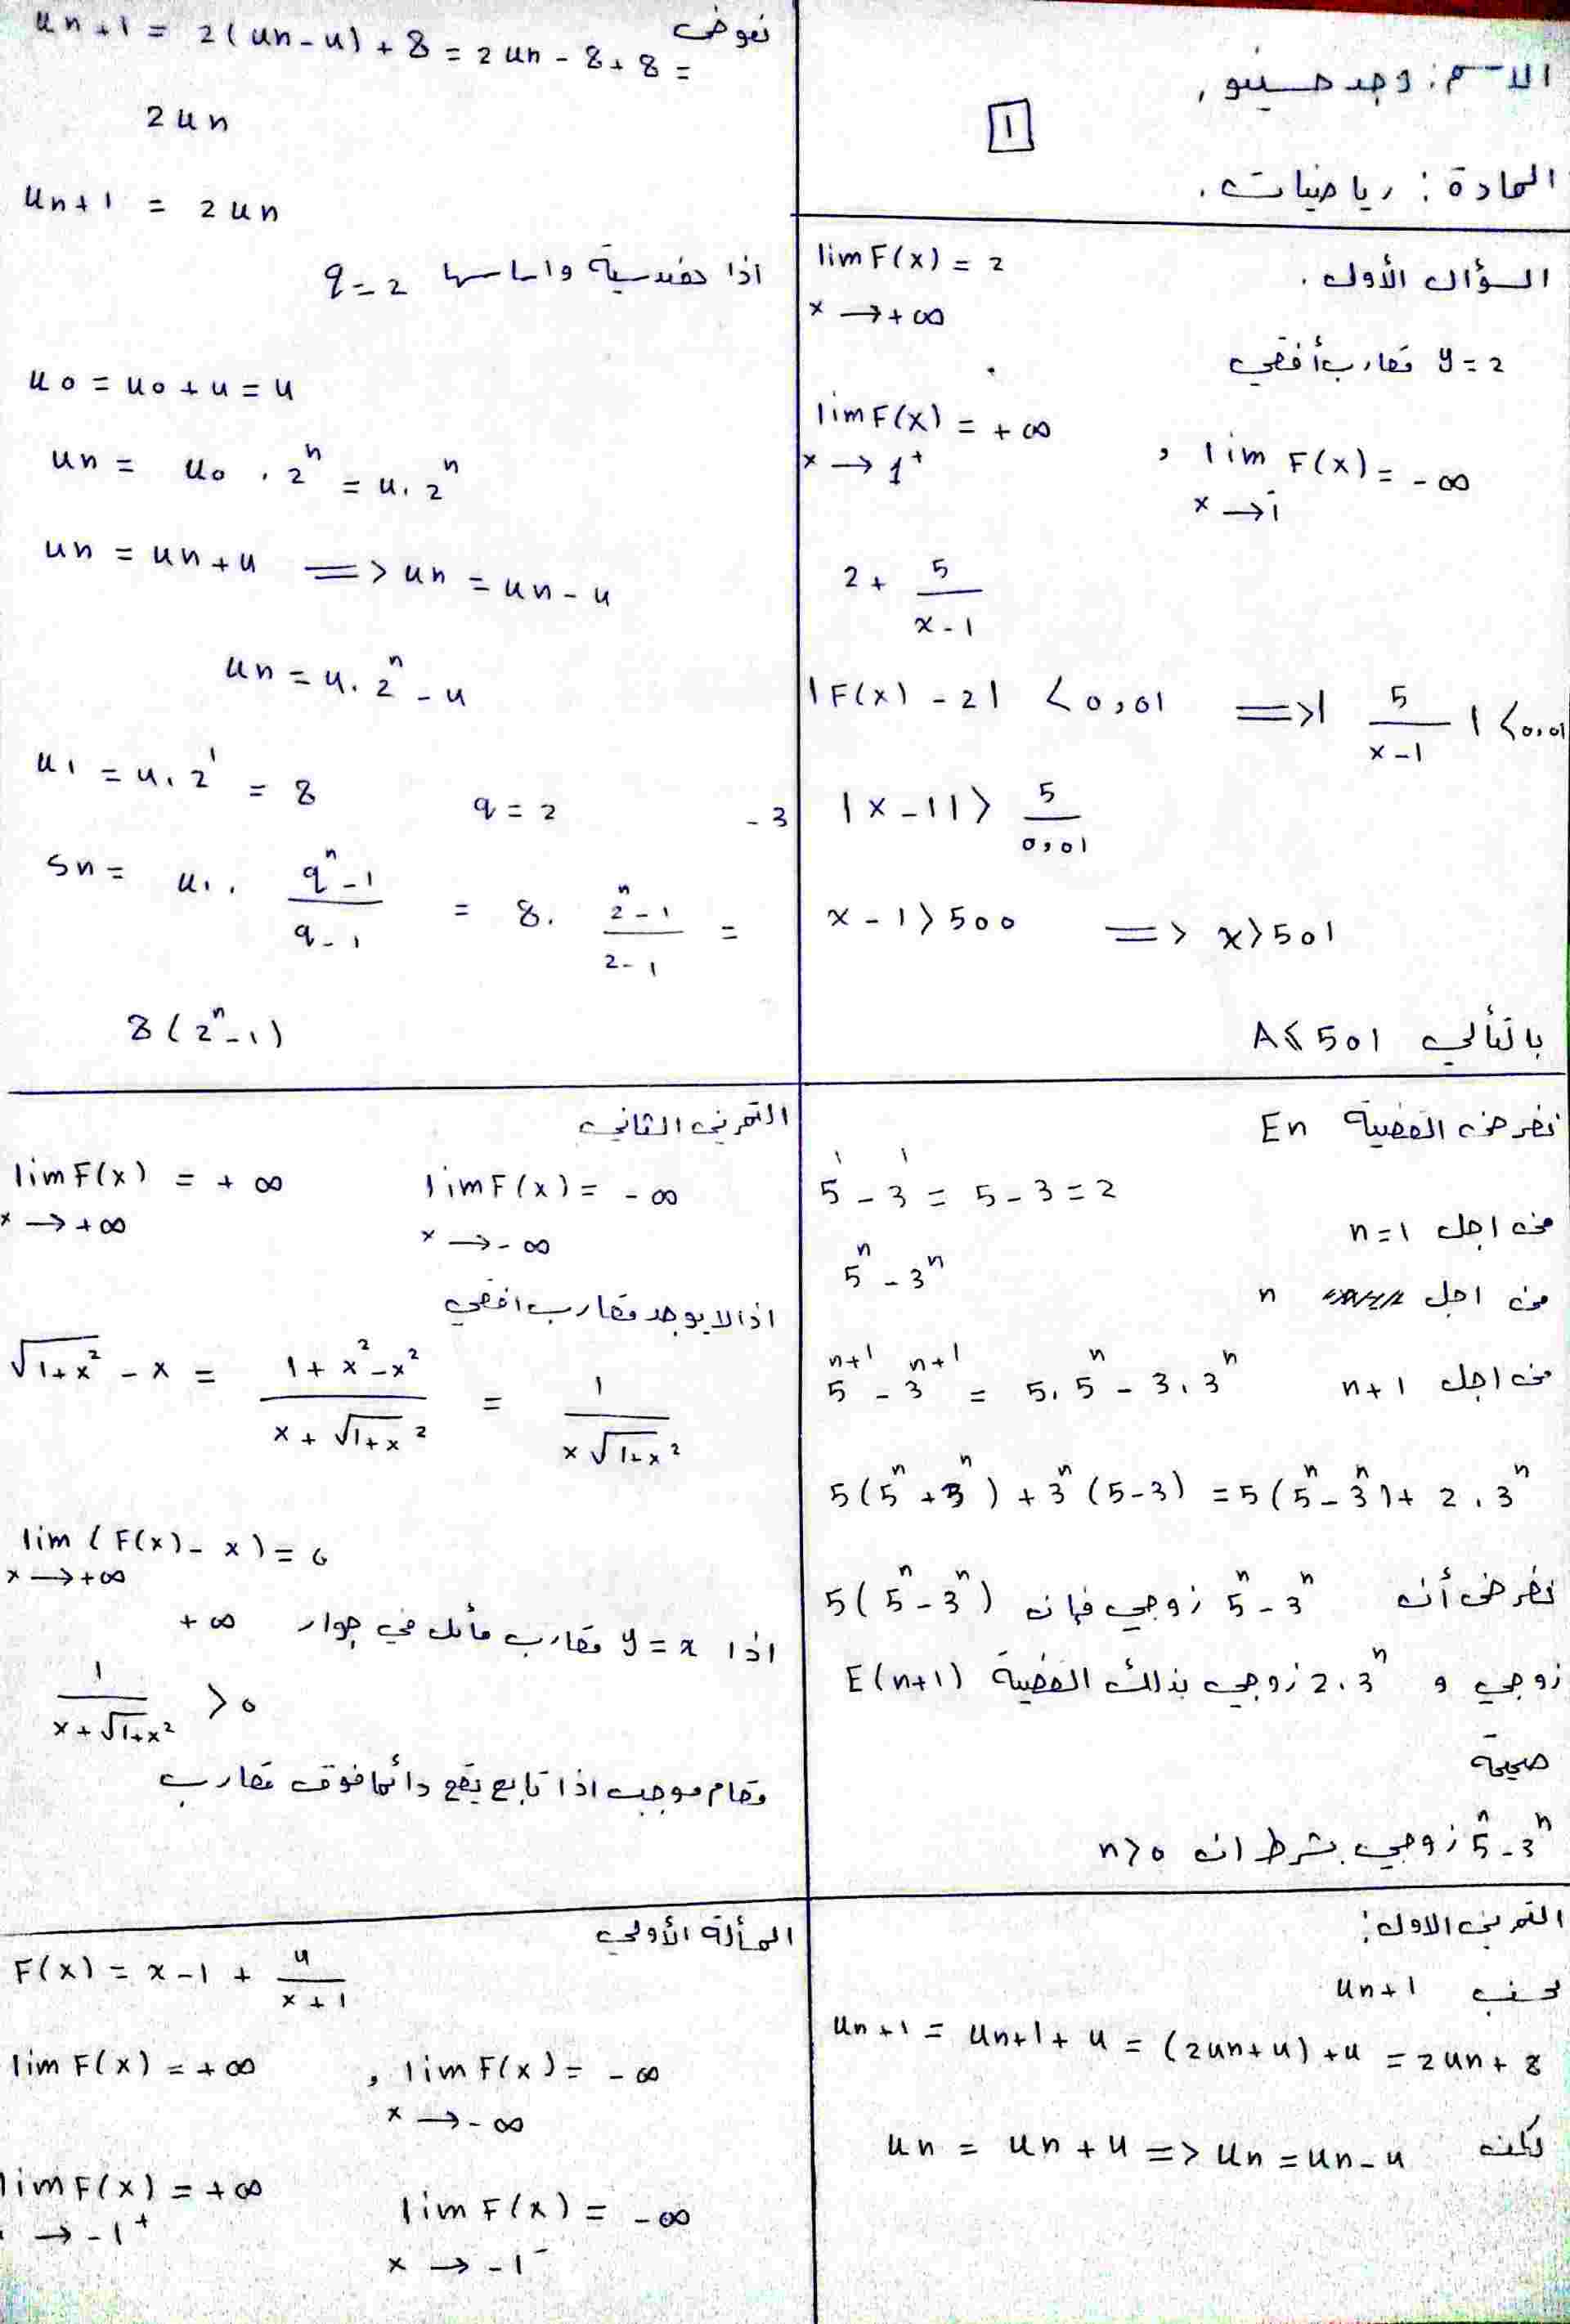 الاسم: وجد حسينو,
1
المادة: رياضيات.
السؤال الأول.
lim F(x) = 2
x → +∞
y = 2 مقارب أفقي
lim F(x) = +∞ , lim F(x) = -∞
x → 1⁺ x → 1⁻
2 + 5/(x-1)
|F(x) - 2| < 0,01 => |5/(x-1)| < 0,01
|x-1| > 5/0,01
x-1 > 500 => x > 501
بالتألي A ≤ 501
نفرض القضية En
5¹ - 3¹ = 5 - 3 = 2
من اجل n=1
5ⁿ - 3ⁿ
من اجل n
5ⁿ⁺¹ - 3ⁿ⁺¹ = 5.5ⁿ - 3.3ⁿ من اجل n+1
5(5ⁿ + 3ⁿ) + 3ⁿ(5-3) = 5(5ⁿ - 3ⁿ) + 2.3ⁿ
نفرض أن 5ⁿ - 3ⁿ زوجي فإن 5(5ⁿ - 3ⁿ)
زوجي و 2.3ⁿ زوجي بذلك القضية E(n+1)
صحيحة
5ⁿ - 3ⁿ زوجي بشرط ان n>0
التمرين الاول:
نحسب un+1
un+1 = un+1 + u = (2un+u) + u = 2un + 8
لكن un = un + u => un = un - u
نعوض
un+1 = 2(un - u) + 8 = 2un - 8 + 8 =
2un
un+1 = 2un
اذا هندسية واساسها q = 2
u0 = u0 + u = u
un = u0 . 2ⁿ = u. 2ⁿ
un = un + u => un = un - u
un = u. 2ⁿ - u
u1 = u. 2¹ = 8 q = 2 -3
Sn = u1. (qⁿ-1)/(q-1) = 8. (2ⁿ-1)/(2-1) =
8(2ⁿ-1)
التمرين الثاني
lim F(x) = +∞ lim F(x) = -∞
x → +∞ x → -∞
اذا لا يوجد مقارب افقي
√(1+x²) - x = (1 + x² - x²)/(x + √(1+x²)) = 1/(x√(1+x²))
lim (F(x) - x) = 0
x → +∞
اذا y = x مقارب مائل في جوار +∞
1/(x+√(1+x²)) > 0
مقام موجب اذا تابع يقع دائما فوق مقارب
المسألة الأولى
F(x) = x-1 + u/(x+1)
lim F(x) = +∞ , lim F(x) = -∞
x → -∞
lim F(x) = +∞ lim F(x) = -∞
→ -1⁺ x → -1⁻